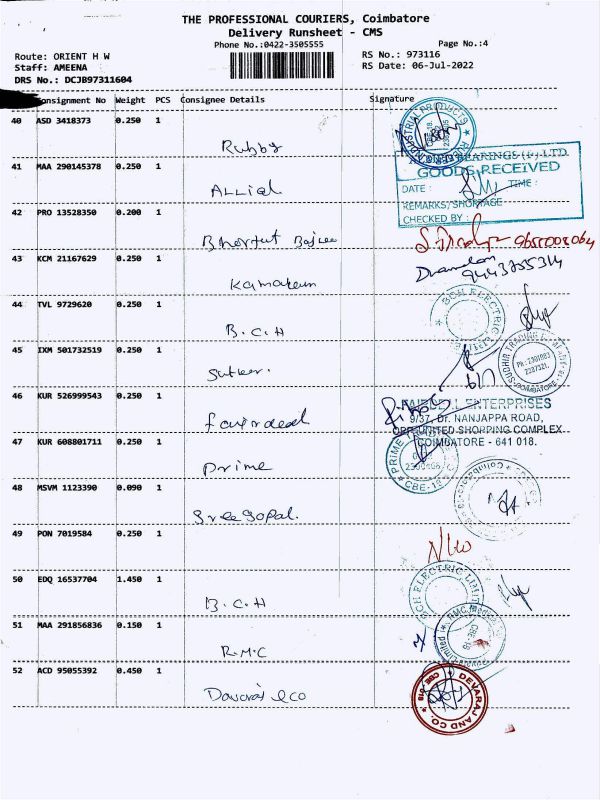 THE PROFESSIONAL COURIERS, Coimbatore
Delivery Runsheet - CMS
Phone No.:0422-3505555
Page No.:4
Route: ORIENT H W
RS No.: 973116
Staff: AMEENA
RS Date: 06-Jul-2022
DRS No.: DCJB97311604
onsignment No Weight PCS Consignee Details Signature
40 ASD 3418373 0.250 1
Rubby
41 MAA 290145378 0.250 1
BEARINGS LTD
GOODS RECEIVED
DATE : TIME :
REMARKS/SHORTAGE
CHECKED BY :
42 PRO 13528350 0.200 1
9655008064
43 KCM 21167629 0.250 1
9443755314
44 TVL 9729620 0.250 1
BCH ELECTRIC
B.C.H
45 IXM 501732519 0.250 1
SUDHIR TRADING
COIMBATORE
6/7
46 KUR 526999543 0.250 1
ENTERPRISES
9/37, Dr. NANJAPPA ROAD,
OPP. UNITED SHOPPING COMPLEX
COIMBATORE - 641 018.
47 KUR 608801711 0.250 1
PRIME
CBE-18
Prime
48 MSVM 1123390 0.090 1
Sree Gopal.
49 PON 7019584 0.250 1
50 EDQ 16537704 1.450 1
BCH ELECTRIC LIMITED
B.C.H
51 MAA 291856836 0.150 1
RMC
R.M.C
52 ACD 95055392 0.450 1
DEVARAJ AND CO.
CBE-018